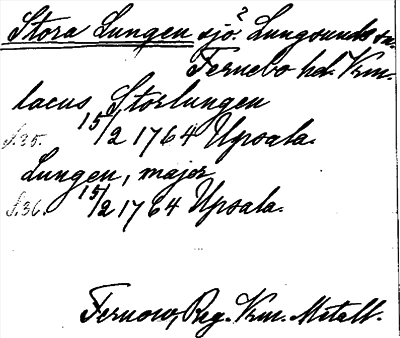 Stora Lungen sjö? Lungsunds sn.
Fernebo hd. Vrm.
lacus, Storlungen
s.35. 15/2 1764 Upsala.
Lungen, major
s.36. 15/2 1764 Upsala.
Fernow, Reg. Vrm. Metall.